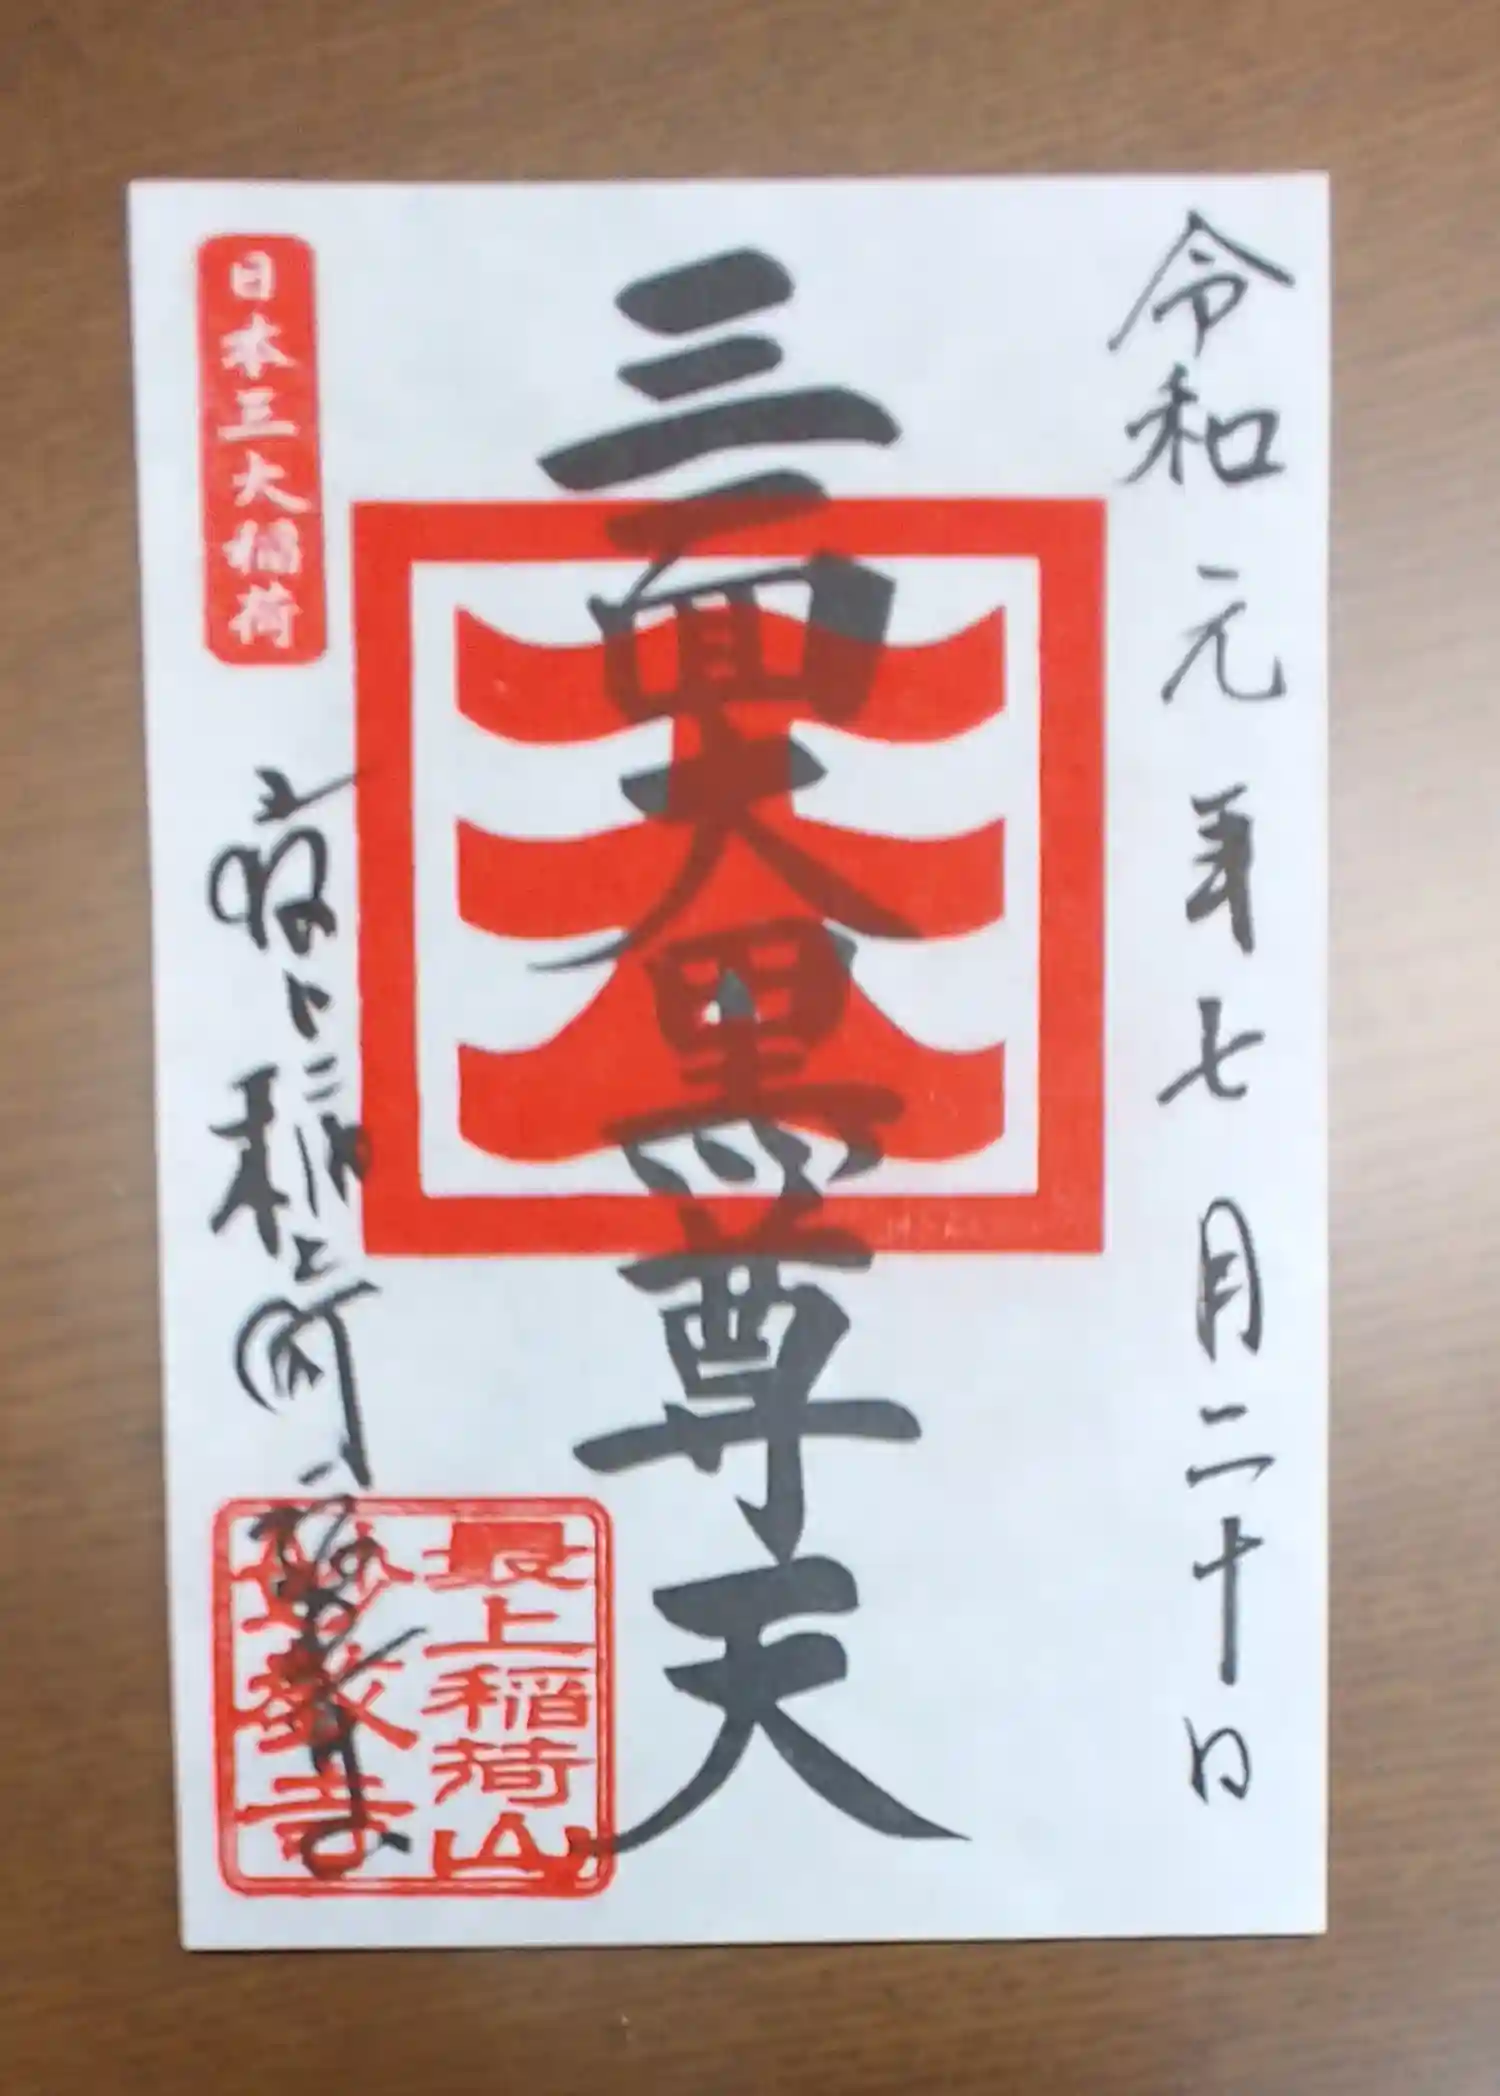 令和元年七月二十日
三面大黒尊天
日本三大稲荷
最上稲荷山
妙教寺
最上稲荷